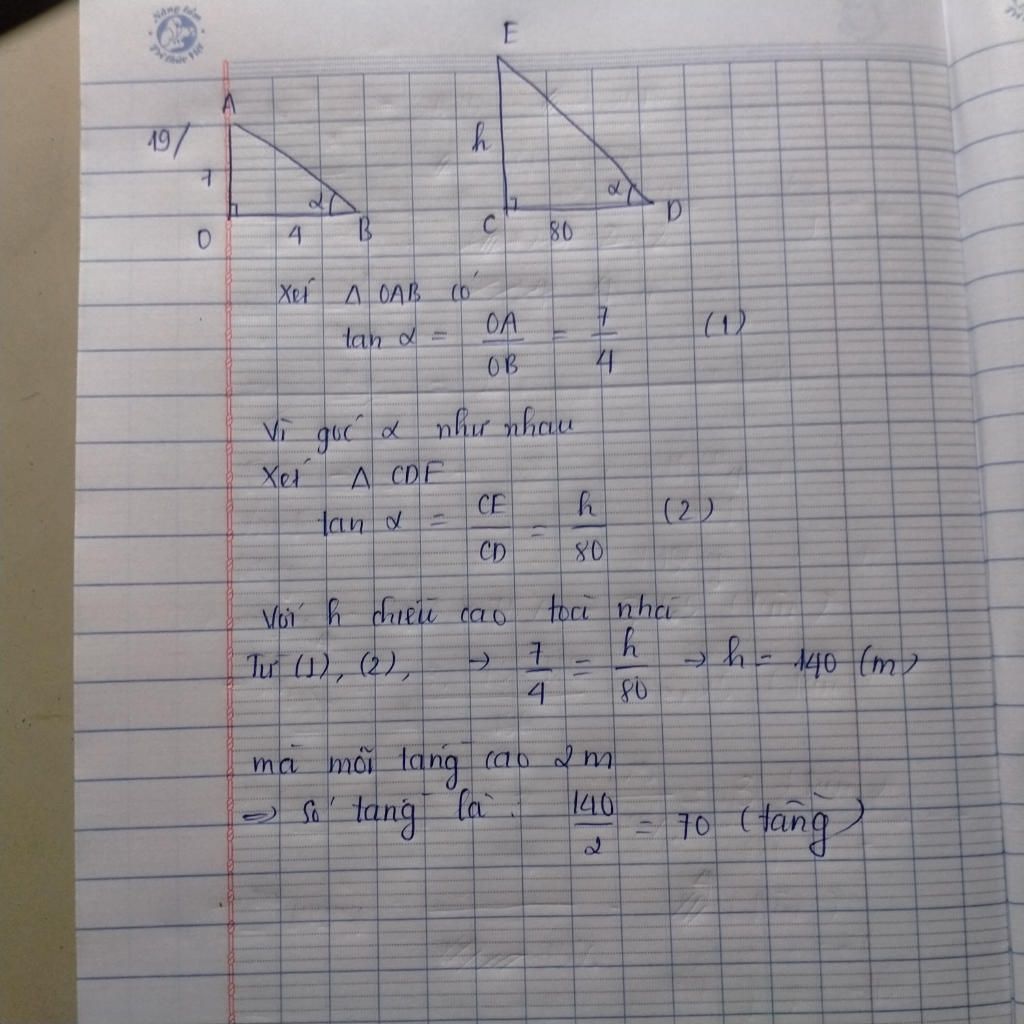 Nâng tầm
Tri thức Việt
E
A
19/
h
7
α
α
O
4
B
C
80
D
Xét Δ OAB có
tan α = OA/OB = 7/4 (1)
Vì góc α như nhau
Xét Δ CDE
tan α = CE/CD = h/80 (2)
Với h chiều cao toà nhà
Từ (1), (2), → 7/4 = h/80 → h = 140 (m)
mà mỗi tầng cao 2m
=> Số tầng là : 140/2 = 70 (tầng)